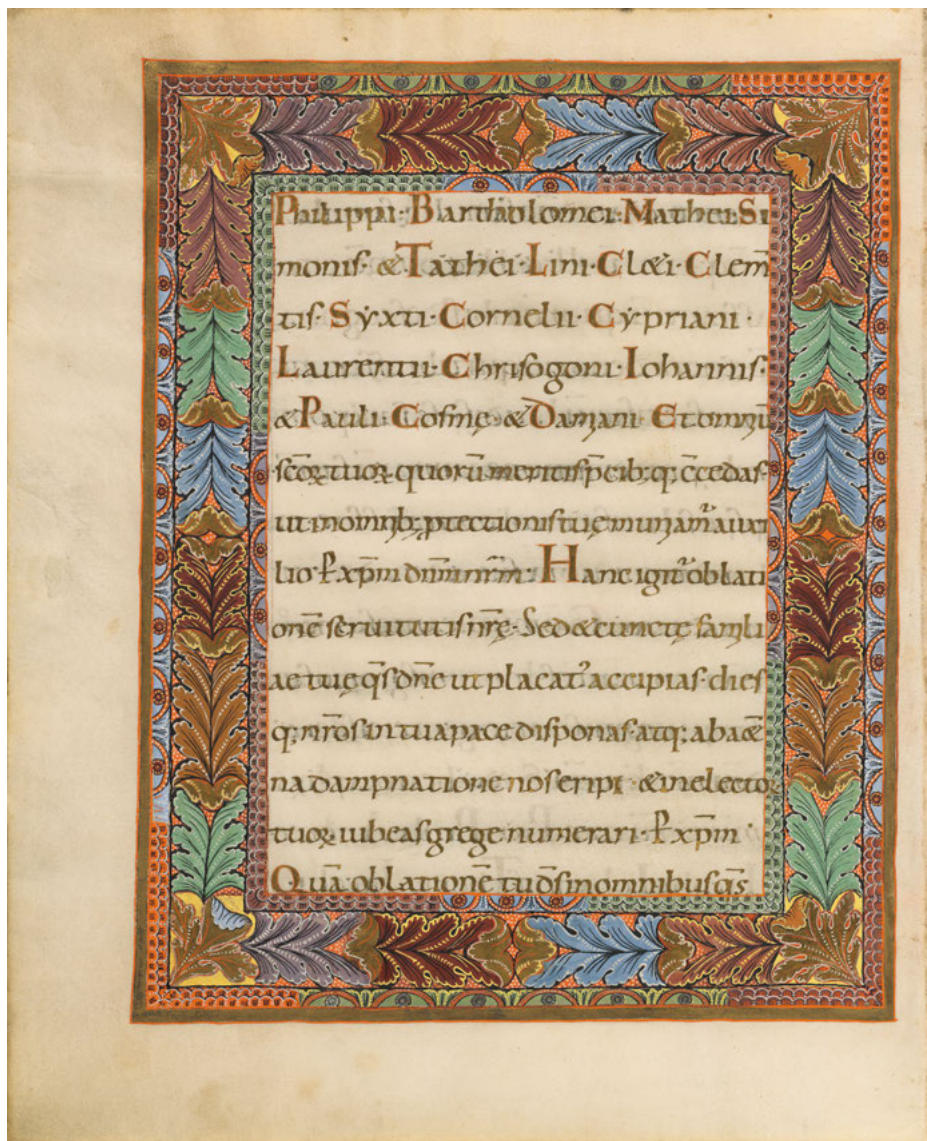 Philippi · Bartholomei · Mathei · Si
monis · & Tathei · Lini · Cl&i · Clem̄
tis · Syxti · Cornelii · Cypriani ·
Laurentii · Chrisogoni · Iohannis ·
& Pauli · Cosmę · & Damiani · Et omniū
sc̄oꝝ tuoꝝ · quorū meritis p̄cib; q; c̄cedas ·
ut in omnib; ꝓtectionis tuę muniam̄ auxi
lio · P̄ xp̄m dn̄m nr̄m · Hanc igit̄ oblati
onē seruitutis nr̄ę · Sed & cunctę famili
ae tuę qs̄ dn̄e ut placat᾽ accipias · dies
q; nr̄os in tua pace disponas · atq; ab aet̄
na dampnatione nos eripi · & in electoꝝ
tuoꝝ iubeas grege numerari · P̄ xp̄m ·
Quā oblationē tu ds̄ in omnibus qs̄